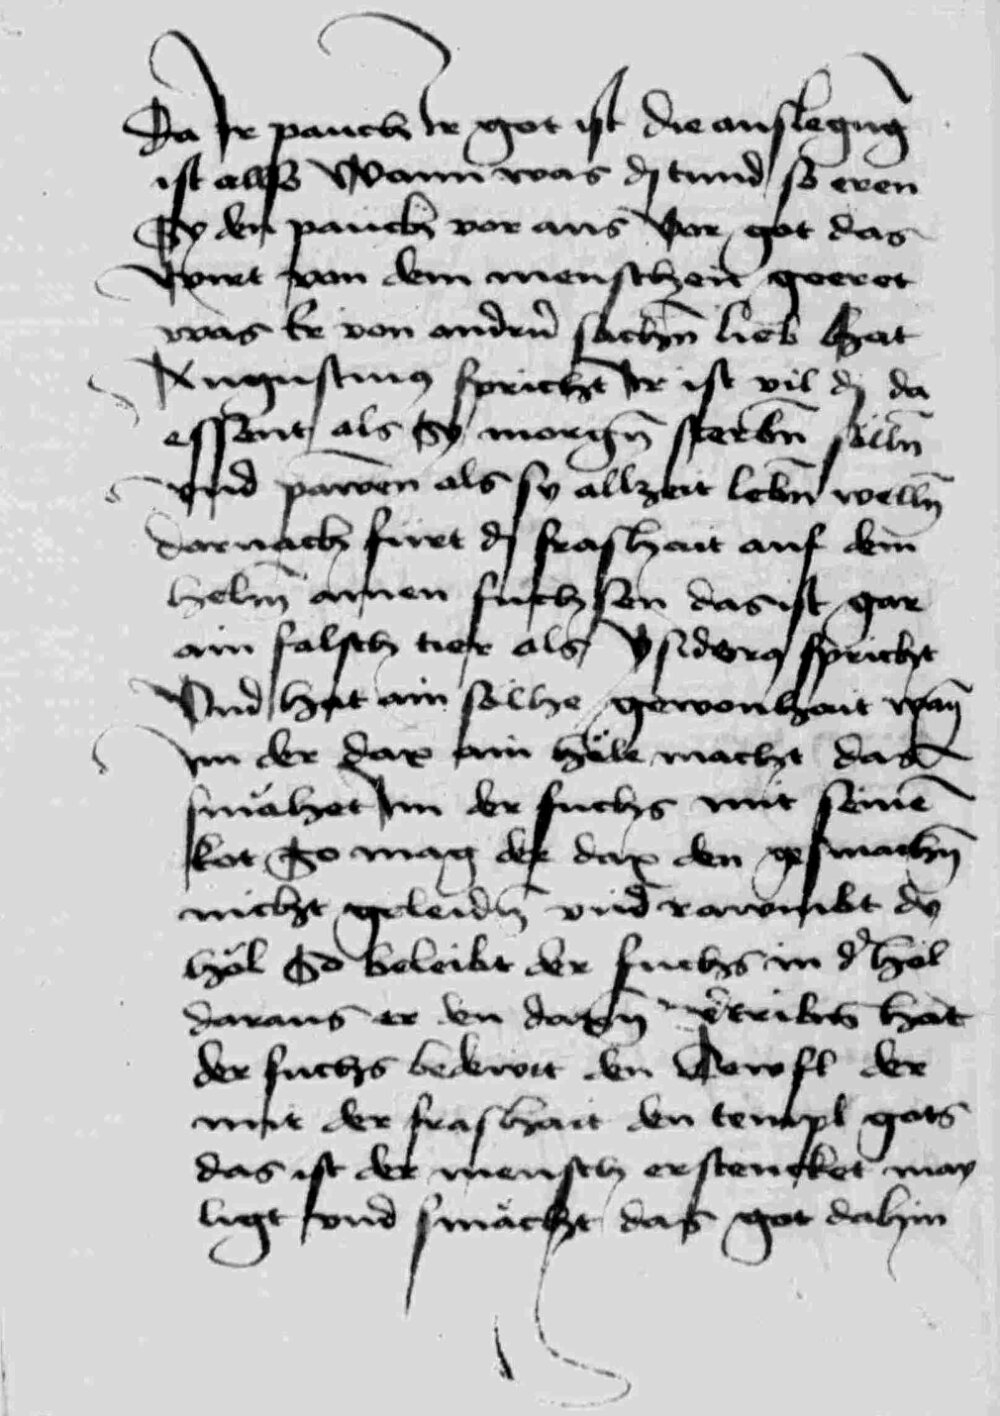 Da Ir pauch Ir got ist die auslegūg
ist allso Wann was dÿ tund so eren
Sy den pauch vor aus Vor got das
Wirt von dem menschen geeret
was Er von andern̄ sachn̄ lieb hat
Augustinus spricht Ir ist vil dÿ da
essent als Sy morgn̄ sterbn̄ sölln̄
vnd pawen als sy allzeit lebn̄ welln̄
darnach fürt dÿ frashait auf dem
helm̄ ainen fuchssen das ist gar
ain falsch tier als Ysiderus spricht
Vnd hat ain sölhe gewonhait wan̄
im der dax ain höle macht das
smähet Im der fuchs mit seinē
kot So mag der dax den gesmachn̄
nicht geleidn̄ vnd rawmbt dy
höl So beleibt der fuchs in d' höl
daraus er den daxn̄ v'tribn̄ hat
der fuchs bedewt den Tewfl der
mit der frashait den templ gots
das ist der mensch erstencket
ligt vnd smächt das got dahin